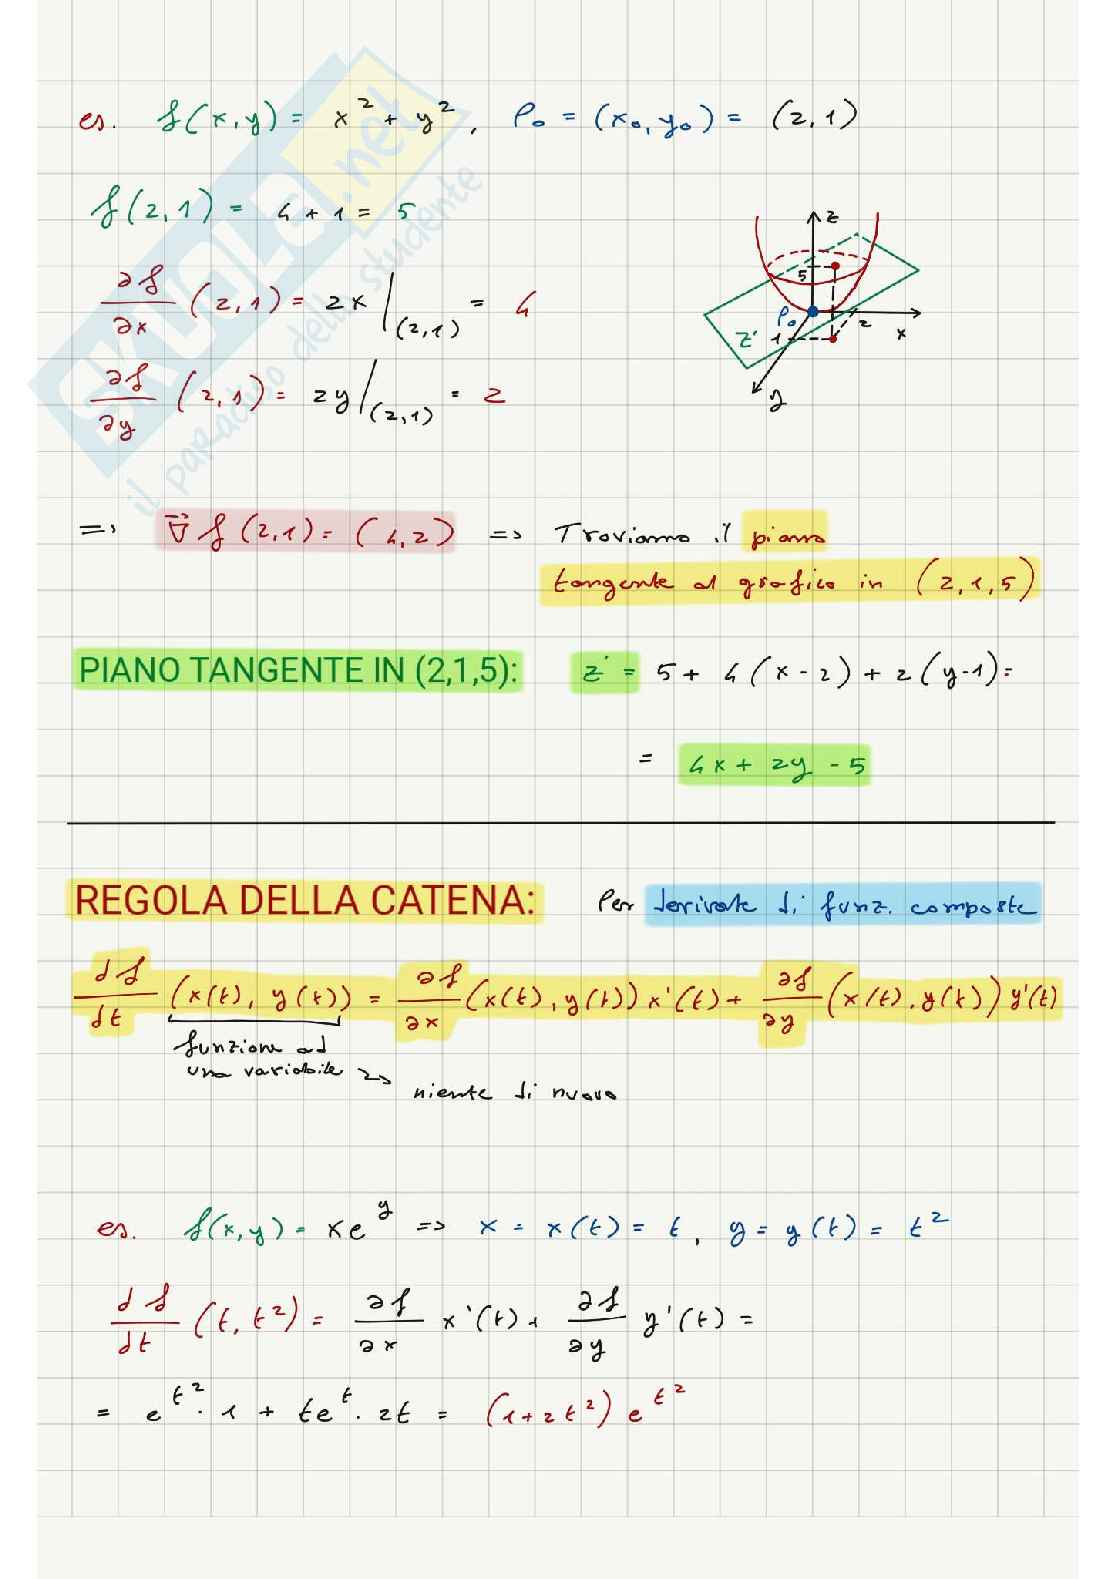 es. f(x,y) = x² + y², P₀ = (x₀, y₀) = (2,1)
f(2,1) = 4 + 1 = 5
∂f/∂x (2,1) = 2x |(2,1) = 4
∂f/∂y (2,1) = 2y |(2,1) = 2
z
5
P₀
2
x
z'
1
y
=> ∇f (2,1) = (4,2) => Troviamo il piano
tangente al grafico in (2,1,5)
PIANO TANGENTE IN (2,1,5): z' = 5 + 4(x-2) + 2(y-1) =
= 4x + 2y - 5
REGOLA DELLA CATENA: Per derivate di funz. composte
df/dt (x(t), y(t)) = ∂f/∂x (x(t), y(t)) x'(t) + ∂f/∂y (x(t), y(t)) y'(t)
funzione ad
una variabile => niente di nuovo
es. f(x,y) = xe^y => x = x(t) = t, y = y(t) = t²
df/dt (t, t²) = ∂f/∂x x'(t) + ∂f/∂y y'(t) =
= e^t² · 1 + te^t · 2t = (1+2t²) e^t²
SKUOLA.net
il paradiso dello studente